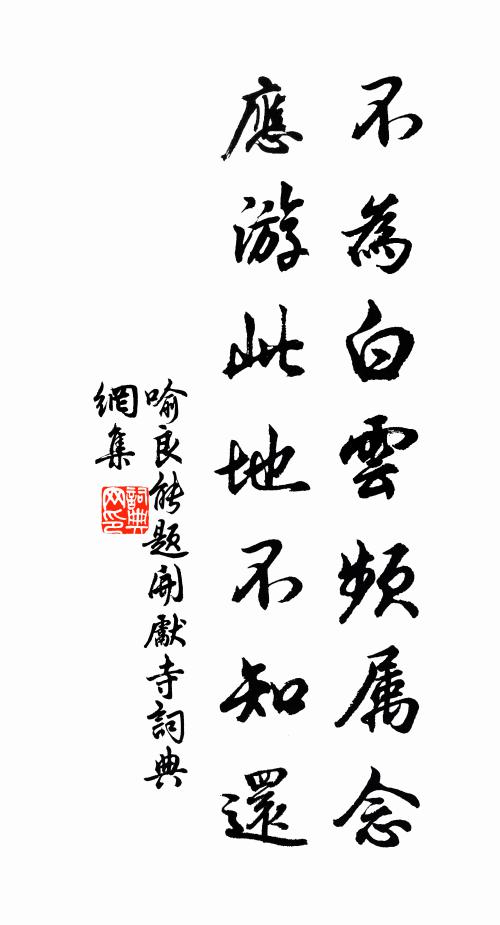 不為白雲頻属念
應游此地不知還
喻良能題開獻寺詞典
網集
詞典
网印